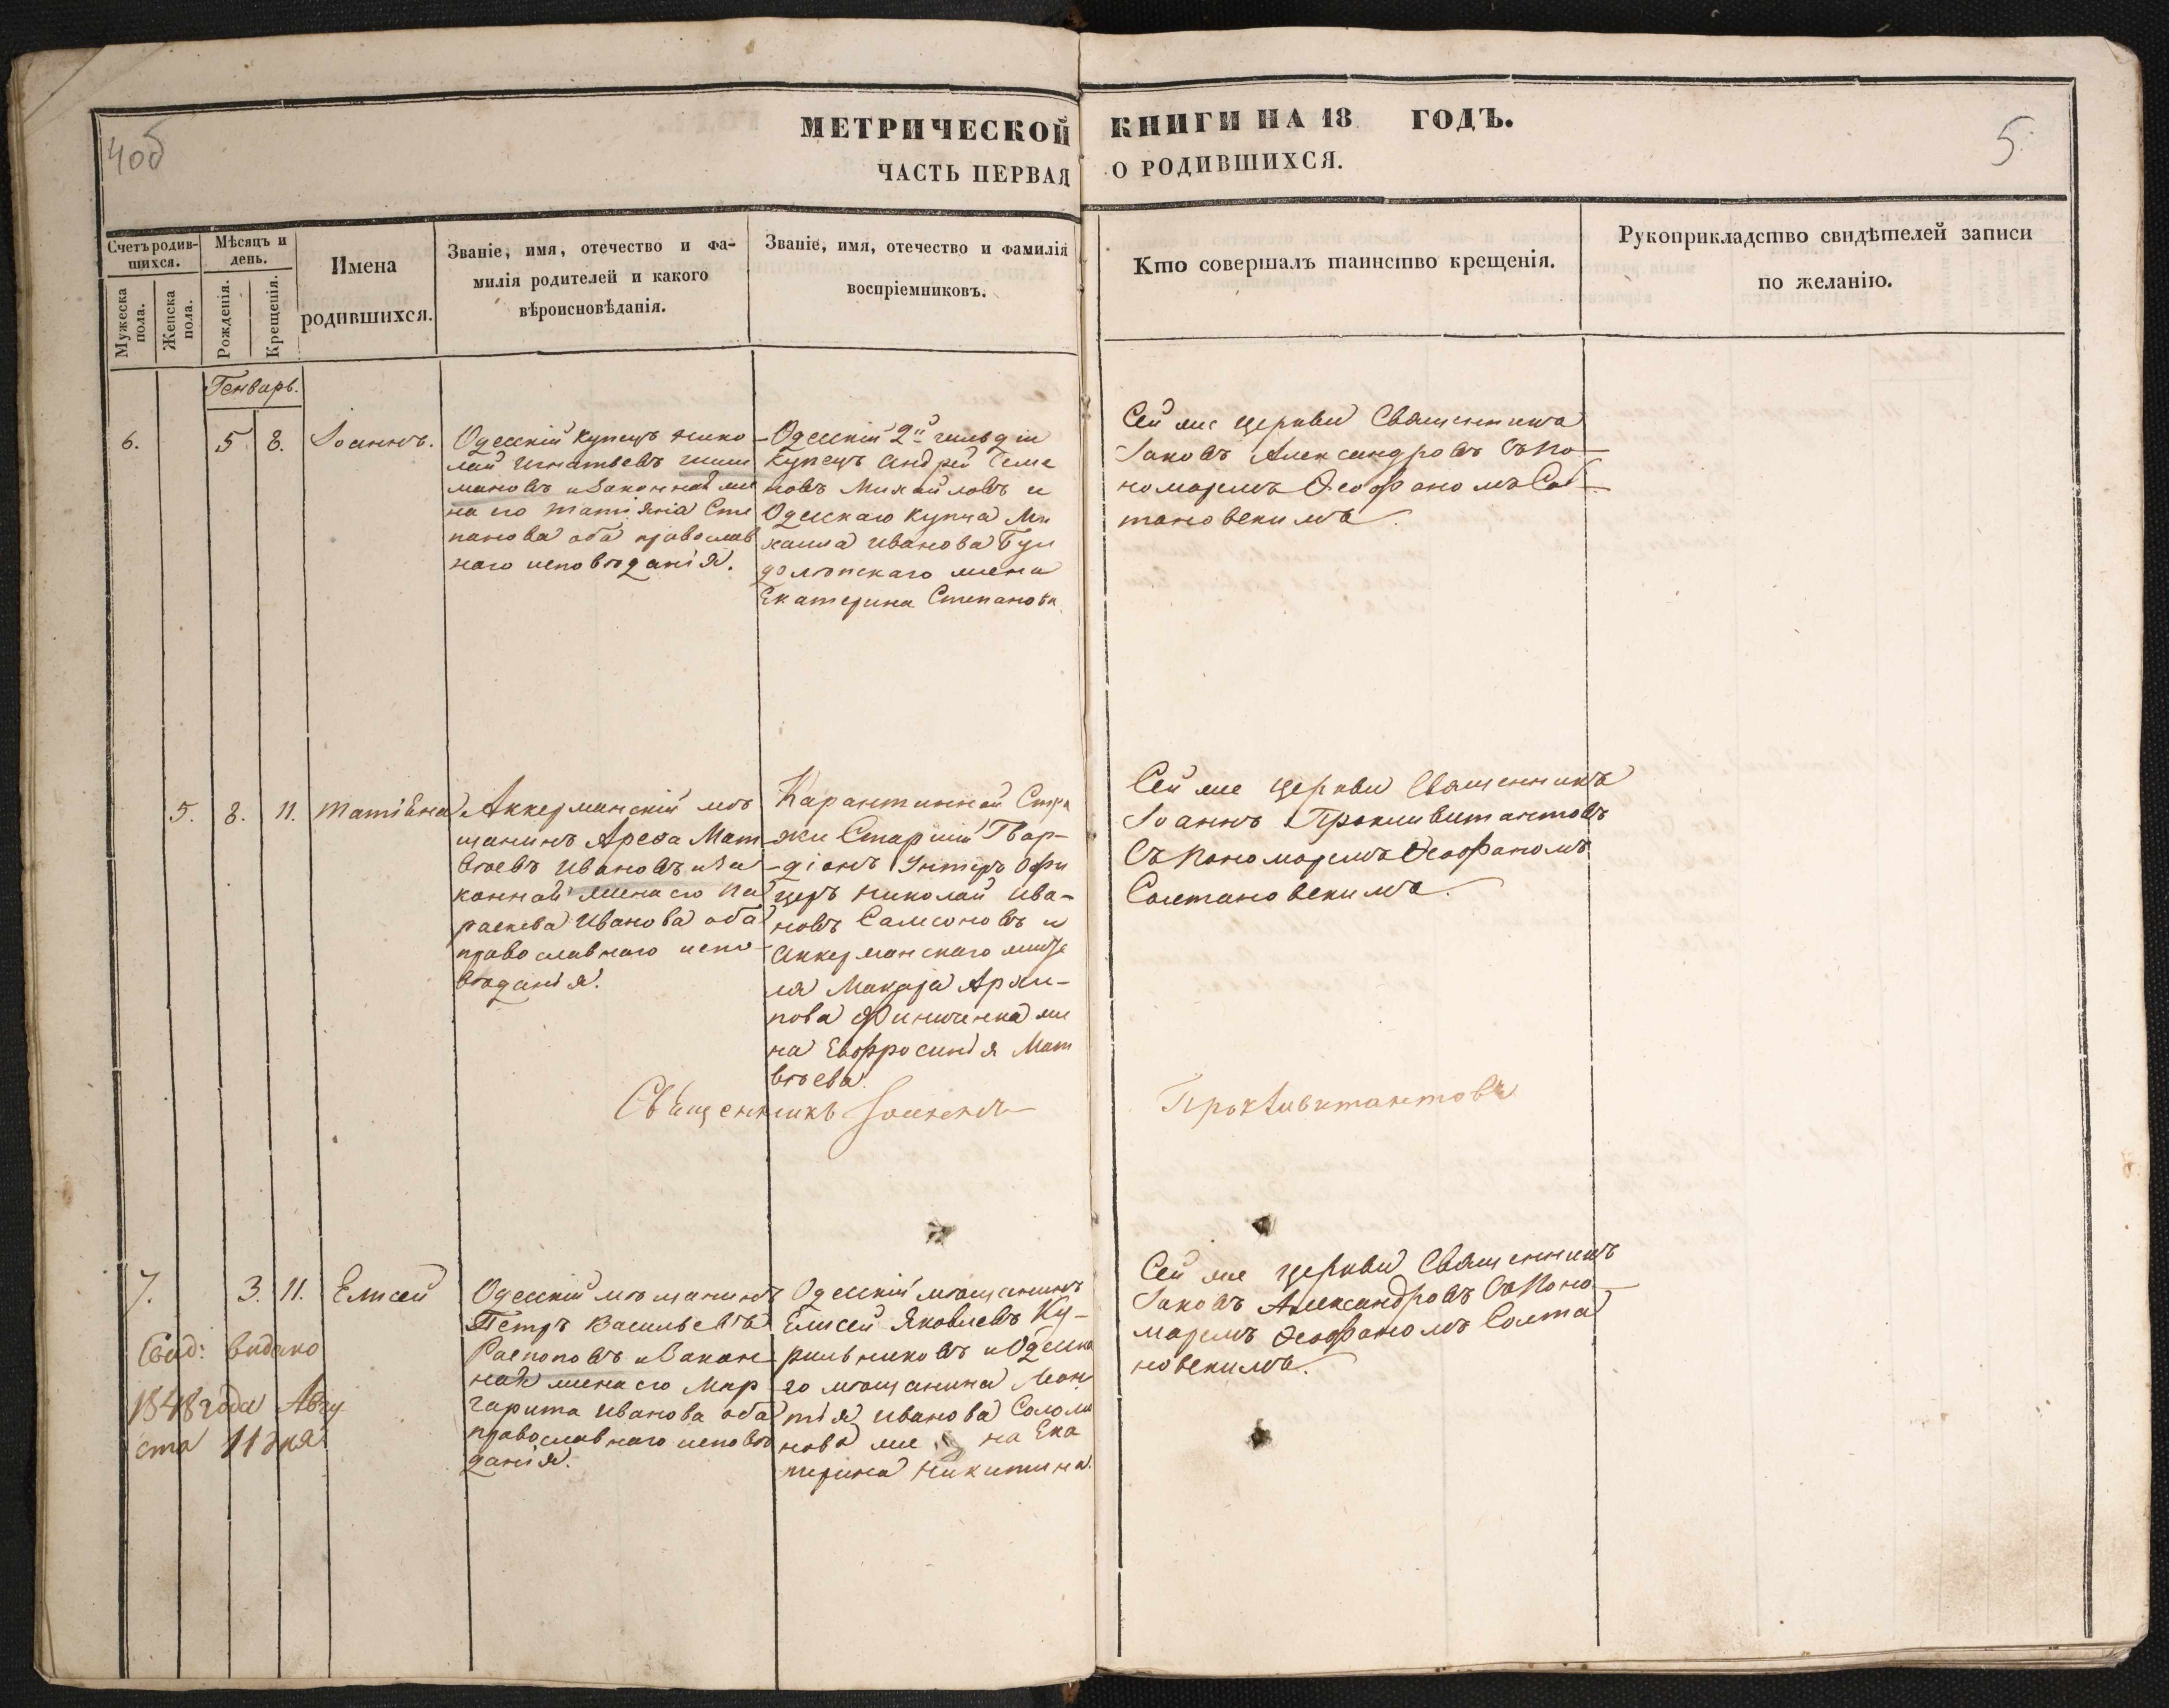 4об
МЕТРИЧЕСКОЙ КНИГИ НА 18 ГОДЪ.
5
ЧАСТЬ ПЕРВАЯ О РОДИВШИХСЯ.
Счетъ родив-
шихся.
Мужеска
пола.
Женска
пола.
Мѣсяцъ и
день.
Рожденія.
Крещенія.
Имена
родившихся.
Званіе, имя, отечество и фа-
милія родителей и какого
вѣроисповѣданія.
Званіе, имя, отечество и фамилія
воспріемниковъ.
Кто совершалъ таинство крещенія.
Рукоприкладство свидѣтелей записи
по желанію.
Генварь.
6. 5 8. Іоаннъ.
Одесскій купецъ Нико
лай Игнатьевъ
мановъ и законная же
на его Татіяна Сте
панова оба православ
наго исповѣданія.
Одесскій 2й гильдіи
купецъ Андрей Семе
новъ Михайловъ и
Одесскаго купца Ми
хаила Иванова
жена
Екатерина Степанова
Сей же церкви Священникъ
Іаковъ Александровъ съ По-
номаремъ Ѳеофаномъ Сол-
тановскимъ.
5. 8. 11. Татіяна
Аккерманскій мѣ
щанинъ Арефа Мат
вѣевъ Ивановъ и за
конная жена его Па
раскева Иванова оба
православнаго испо
вѣданія.
Карантинной Стра
жи Старшій Гвар-
діонъ Унтеръ Офи
церъ Николай Ива-
новъ Самсоновъ и
Аккерманскаго жите
ля Макара Архи-
пова Финиченка же
на Евфросинія Мат
вѣева.
Сей же церкви Священникъ
Іоаннъ Проклевитантовъ
съ Пономаремъ Ѳеофаномъ
Солтановскимъ.
Священникъ Іоаннъ Проклевитантовъ
7. 3. 11. Елисей
Одесскій мѣщанинъ
Петръ Васильевъ
Распоповъ и Закон-
ная жена его Мар
гарита Иванова оба
православнаго исповѣ
данія.
Одесскій мѣщанинъ
Елисей Яковлевъ Ку-
рильниковъ и Одесска
го мѣщанина Леон
тія Иванова Соломи
нова же на Ека
терина Никитина.
Сей же церкви Священникъ
Іаковъ Александровъ съ Поно-
маремъ Ѳеофаномъ Солта
новскимъ.
Свид: видано
1848 года Авгу
ста 11 дня